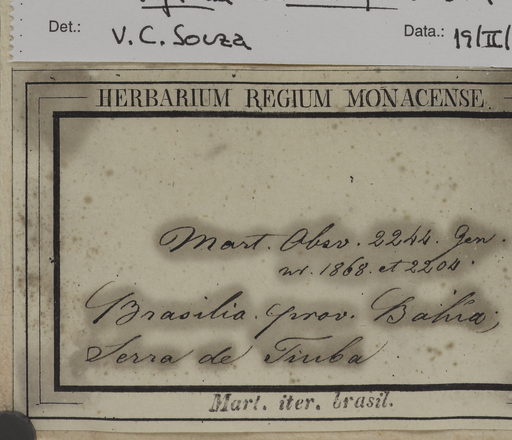 Det.: V. C. Souza Data.: 19/II/
HERBARIUM REGIUM MONACENSE
Mart. Obsv. 2244. Gen.
nr. 1868. et 2204.
Brasilia. prov. Bahia,
Serra de Tiuba
Mart. iter. brasil.